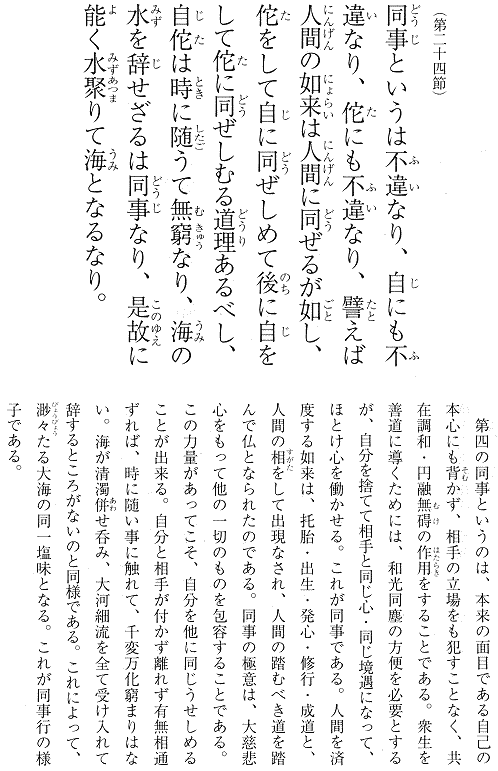 （第二十四節）
同事というは不違なり、自にも不
違なり、佗にも不違なり、譬えば
人間の如来は人間に同ぜるが如し、
佗をして自に同ぜしめて後に自を
して佗に同ぜしむる道理あるべし、
自佗は時に随うて無窮なり、海の
水を辞せざるは同事なり、是故に
能く水聚りて海となるなり。
第四の同事というのは、本来の面目である自己の
本心にも背かず、相手の立場をも犯すことなく、共
在調和・円融無碍の作用をすることである。衆生を
善道に導くためには、和光同塵の方便を必要とする
が、自分を捨てて相手と同じ心・同じ境遇になって、
ほとけ心を働かせる。これが同事である。人間を済
度する如来は、托胎・出生・発心・修行・成道と、
人間の相をして出現なされ、人間の踏むべき道を踏
んで仏となられたのである。同事の極意は、大慈悲
心をもって他の一切のものを包容することである。
この力量があってこそ、自分を他に同じうせしめる
ことが出来る。自分と相手が付かず離れず有無相通
ずれば、時に随い事に触れて、千変万化窮まりはな
い。海が清濁併せ呑み、大河細流を全て受け入れて
辞するところがないのと同様である。これによって、
渺々たる大海の同一塩味となる。これが同事行の様
子である。